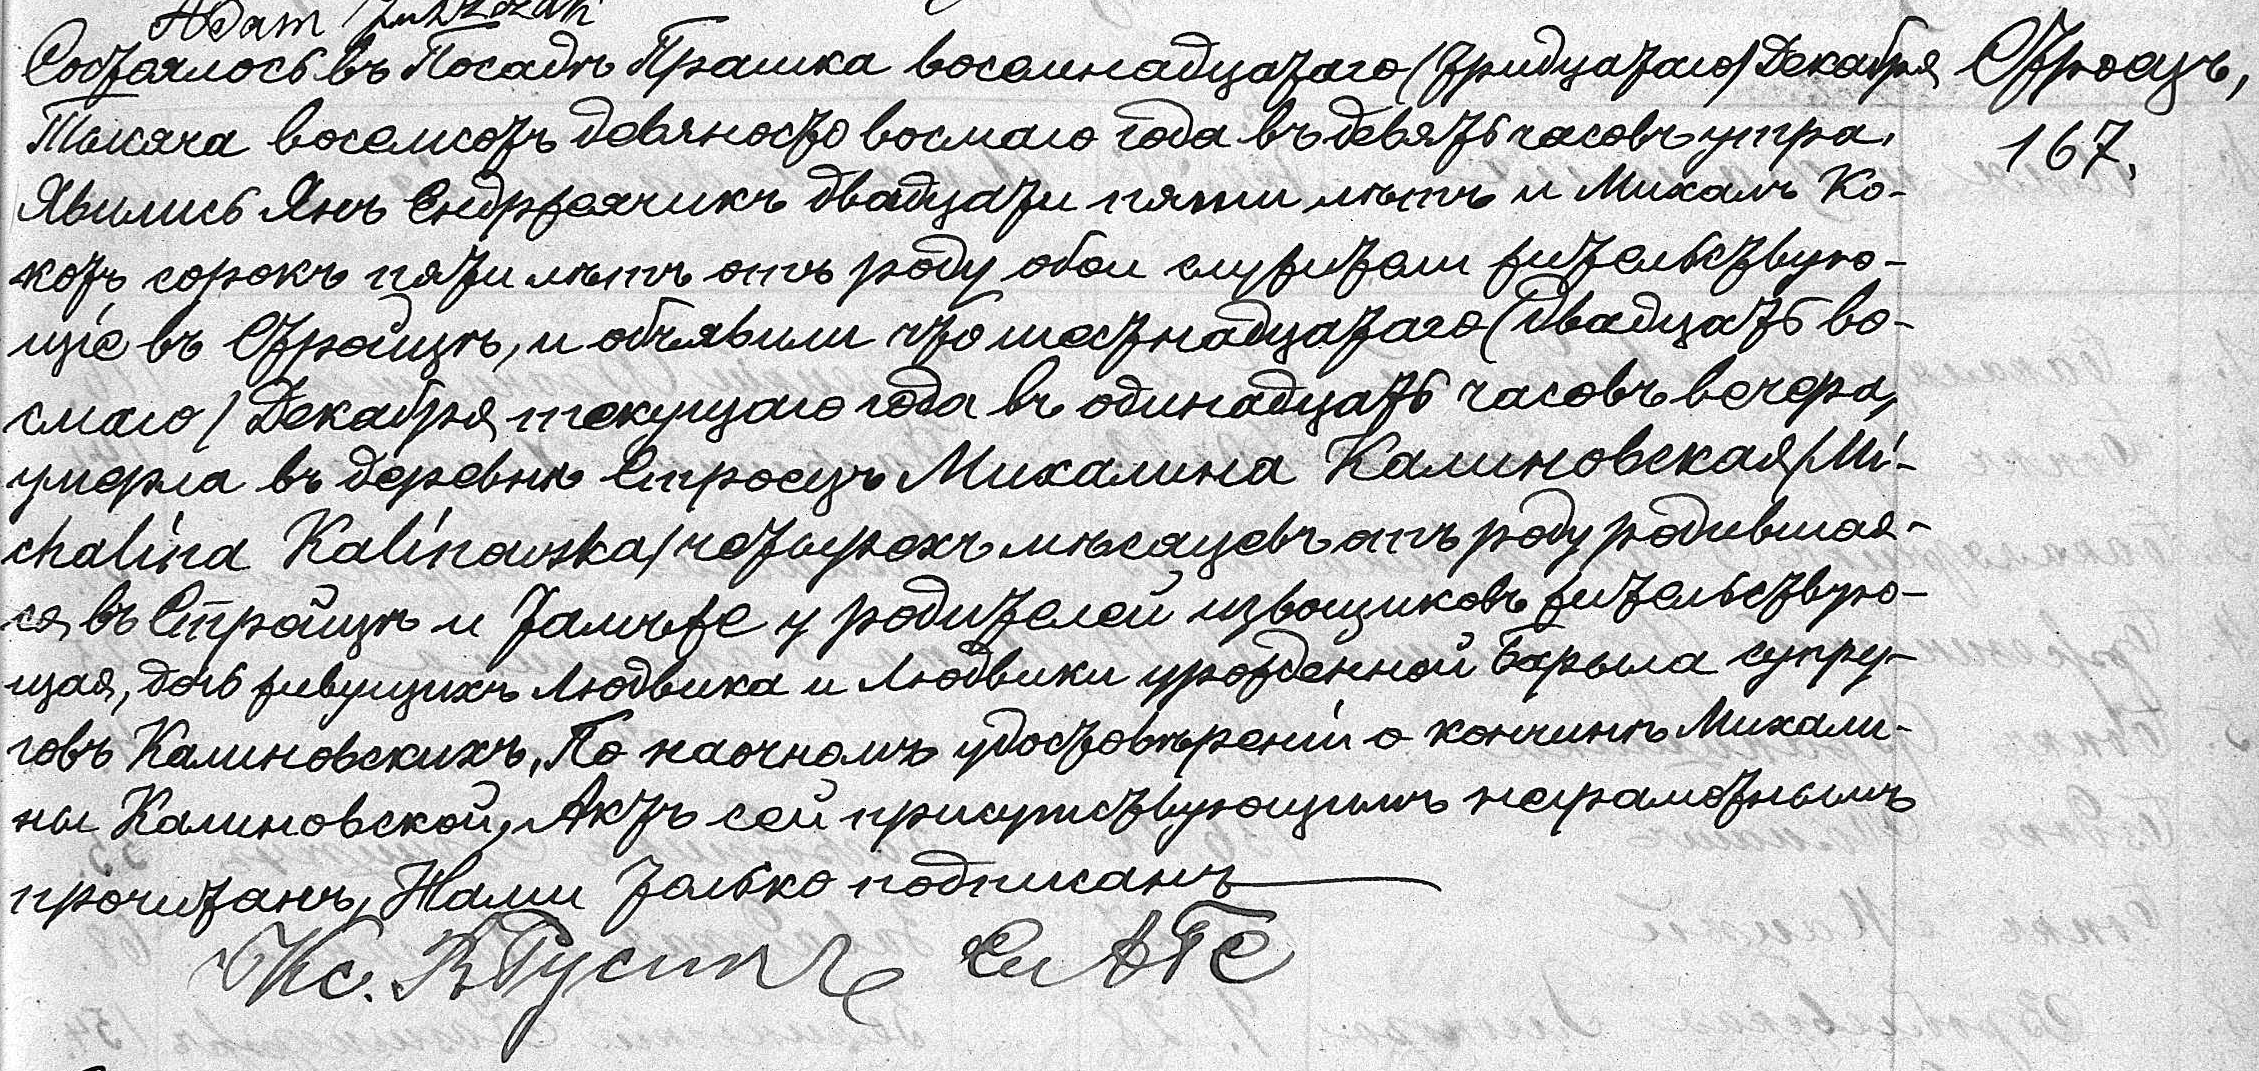 Адам
Состоялось въ Посадѣ Прашка восемнадцатаго (тридцатаго) Декабря Строецъ,
Тысяча восемсотъ девяносто восмаго года въ девять часовъ утра. 167.
Явились Янъ Ендржеячикъ двадцати пяти лѣтъ и Михалъ Ко-
котъ сорокъ пяти лѣтъ отъ роду обои служители жительствую-
щіе въ Стройцѣ, и объявили что шестнадцатаго (двадцать во-
смаго) Декабря текущаго года въ одинадцать часовъ вечера,
умерла въ деревнѣ Строецъ Михалина Калиновская /Mi-
chalina Kalinowska/ четырехъ мѣсяцевъ отъ роду родившая-
ся въ Стройцѣ и тамъже у родителей извощиковъ жительствую-
щая, дочь живущихъ Людвика и Людвики урожденной Барыла супру-
говъ Калиновскихъ. По наочномъ удостовѣреніи о кончинѣ Михали-
ны Калиновской, Актъ сей присутствующимъ неграмотнымъ
прочитанъ, Нами только подписанъ
Кс.